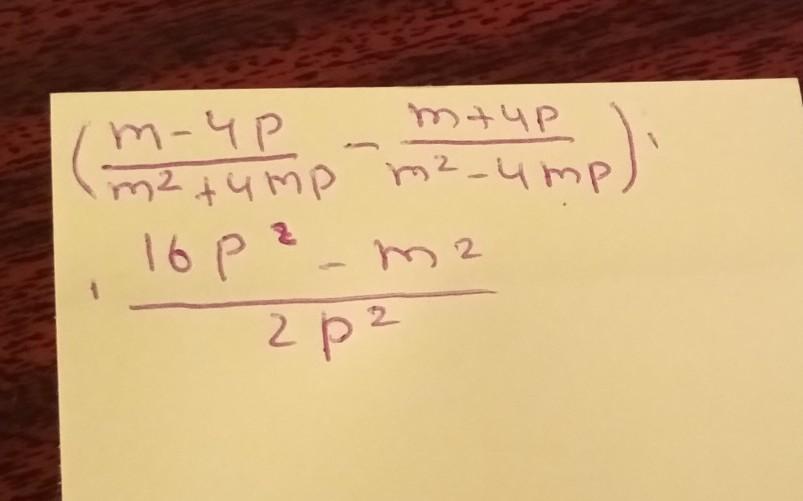 (m-4p/m²+4mp - m+4p/m²-4mp)·
· 16p²-m²/2p²